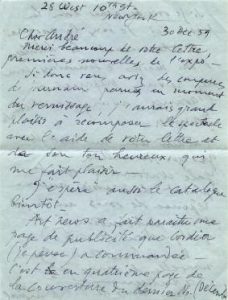 28 West 10th St-
New York
30 Dec 59
Cher André
Merci beaucoup de votre lettre
premières nouvelles de l'expo.
Si donc vers
de
au moment
du vernissage j'aurais grand
plaisir à recomposer le spectacle
avec l'aide de votre lettre et
de son ton heureux, qui
me fait plaisir -
J'espère aussi le catalogue
bientôt.
Art news a fait paraître une
page de publicité que Cordier
(je pense) a commandée -
C'est en quatrième page de
la couverture du dernier No. Décembre